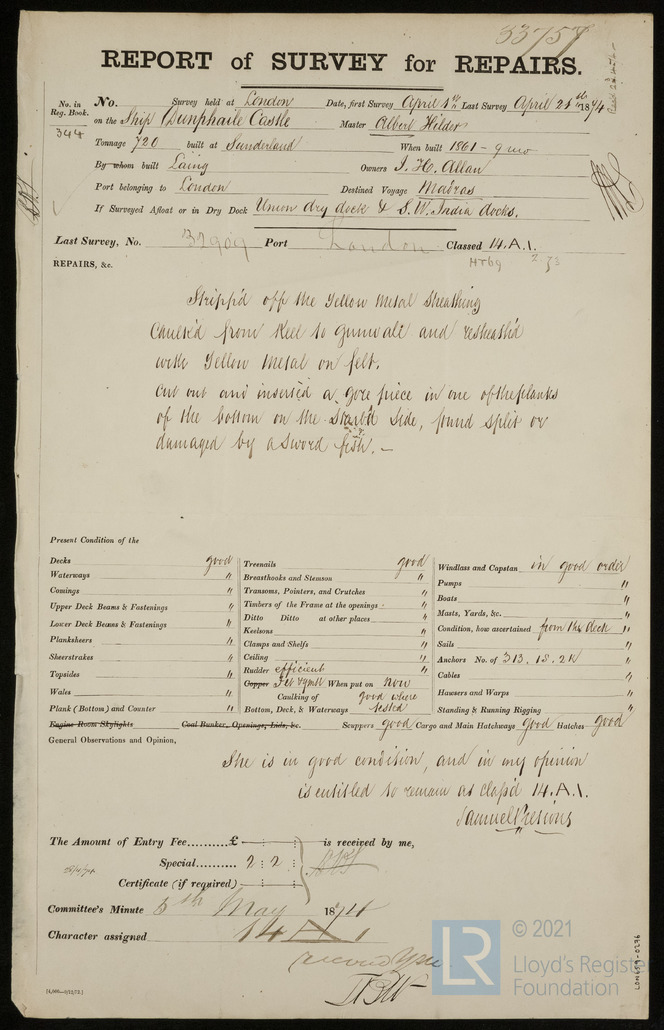 33757
REPORT of SURVEY for REPAIRS.
No. in Reg. Book. No. Survey held at London Date, first Survey April 1st Last Survey April 25th 1874
344 on the Ship Dunphaile Castle Master Albert Hilder
Tonnage 720 built at Sunderland When built 1861 - 9 mo
By whom built Laing Owners J. H. Allan
Port belonging to London Destined Voyage Madras
If Surveyed Afloat or in Dry Dock Union dry dock & S. W. India docks.
Last Survey, No. 32909 Port London Classed 14.A.1.
REPAIRS, &c.
Stripp'd off the Yellow Metal Sheathing
Caulk'd from Keel to Gunwale and resheath'd
with Yellow Metal on felt.
Cut out and inserted a gore piece in one of the planks
of the bottom on the Starb'd side, found split or
damaged by a sword fish. —
Present Condition of the
Decks good
Waterways "
Comings "
Upper Deck Beams & Fastenings "
Lower Deck Beams & Fastenings "
Planksheers "
Sheerstrakes "
Topsides "
Wales "
Plank (Bottom) and Counter "
Treenails good
Breasthooks and Stemson "
Transoms, Pointers, and Crutches "
Timbers of the Frame at the openings "
Ditto Ditto at other places "
Keelsons "
Clamps and Shelfs "
Ceiling "
Rudder efficient
Copper When put on now
Caulking of good where
Bottom, Deck, & Waterways tested
Windlass and Capstan in good order
Pumps "
Boats "
Masts, Yards, &c. "
Condition, how ascertained from the deck "
Sails "
Anchors No. of 3B. 1S. 2K "
Cables "
Hawsers and Warps "
Standing & Running Rigging "
Engine Room Skylights Coal Bunker, Openings, Lids, &c. Scuppers good Cargo and Main Hatchways good Hatches good
General Observations and Opinion,
She is in good condition, and in my opinion
is entitled to remain as class'd 14.A.1.
The Amount of Entry Fee..........£ is received by me,
Special.......... 2 : 2 :
Certificate (if required)
Committee's Minute 5th May 1874
Character assigned 14 A 1
LR © 2021
Lloyd's Register
Foundation
LON659-0296